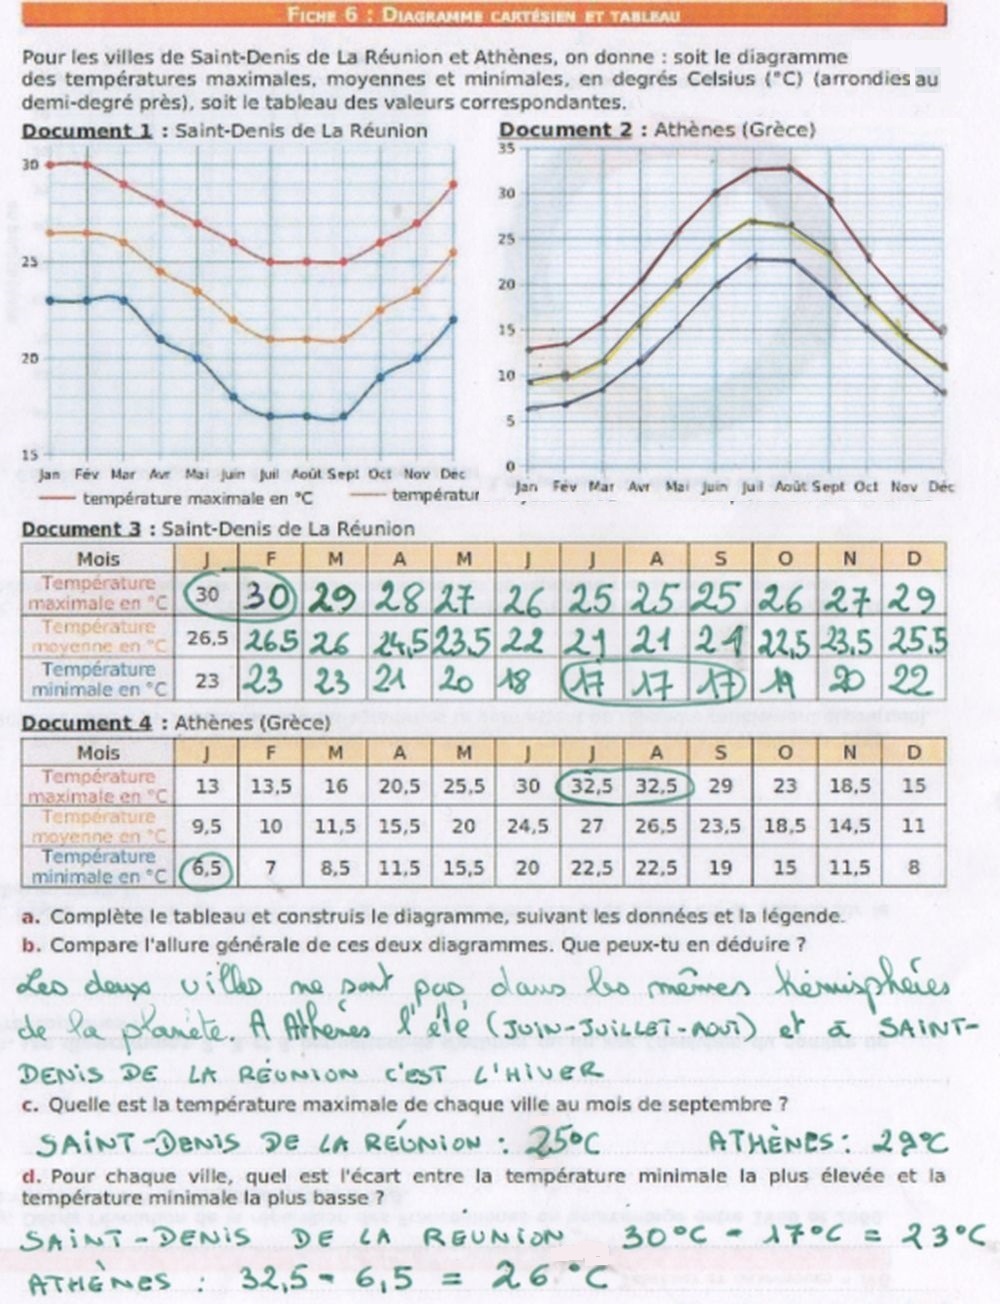 FICHE 6 : DIAGRAMME CARTÉSIEN ET TABLEAU
Pour les villes de Saint-Denis de La Réunion et Athènes, on donne : soit le diagramme
des températures maximales, moyennes et minimales, en degrés Celsius (°C) (arrondies au
demi-degré près), soit le tableau des valeurs correspondantes.
Document 1 : Saint-Denis de La Réunion
30
25
20
15
Jan Fév Mar Avr Mai Juin Juil Août Sept Oct Nov Déc
température maximale en °C températur
Document 2 : Athènes (Grèce)
35
30
25
20
15
10
5
0
Jan Fév Mar Avr Mai Juin Juil Août Sept Oct Nov Déc
Document 3 : Saint-Denis de La Réunion
Mois J F M A M J J A S O N D
Température maximale en °C 30 30 29 28 27 26 25 25 25 26 27 29
Température moyenne en °C 26,5 26,5 26 24,5 23,5 22 21 21 21 22,5 23,5 25,5
Température minimale en °C 23 23 23 21 20 18 17 17 17 19 20 22
Document 4 : Athènes (Grèce)
Mois J F M A M J J A S O N D
Température maximale en °C 13 13,5 16 20,5 25,5 30 32,5 32,5 29 23 18,5 15
Température moyenne en °C 9,5 10 11,5 15,5 20 24,5 27 26,5 23,5 18,5 14,5 11
Température minimale en °C 6,5 7 8,5 11,5 15,5 20 22,5 22,5 19 15 11,5 8
a. Complète le tableau et construis le diagramme, suivant les données et la légende.
b. Compare l'allure générale de ces deux diagrammes. Que peux-tu en déduire ?
Les deux villes ne sont pas dans les mêmes hémisphères
de la planète A Athènes l'été (JUIN-JUILLET-AOUT) et à SAINT-
DENIS DE LA REUNION C'EST L'HIVER
c. Quelle est la température maximale de chaque ville au mois de septembre ?
SAINT-DENIS DE LA RÉUNION : 25°C ATHÈNES : 29°C
d. Pour chaque ville, quel est l'écart entre la température minimale la plus élevée et la
température minimale la plus basse ?
SAINT-DENIS DE LA REUNION 30°C - 17°C = 23°C
ATHÈNES : 32,5 - 6,5 = 26°C